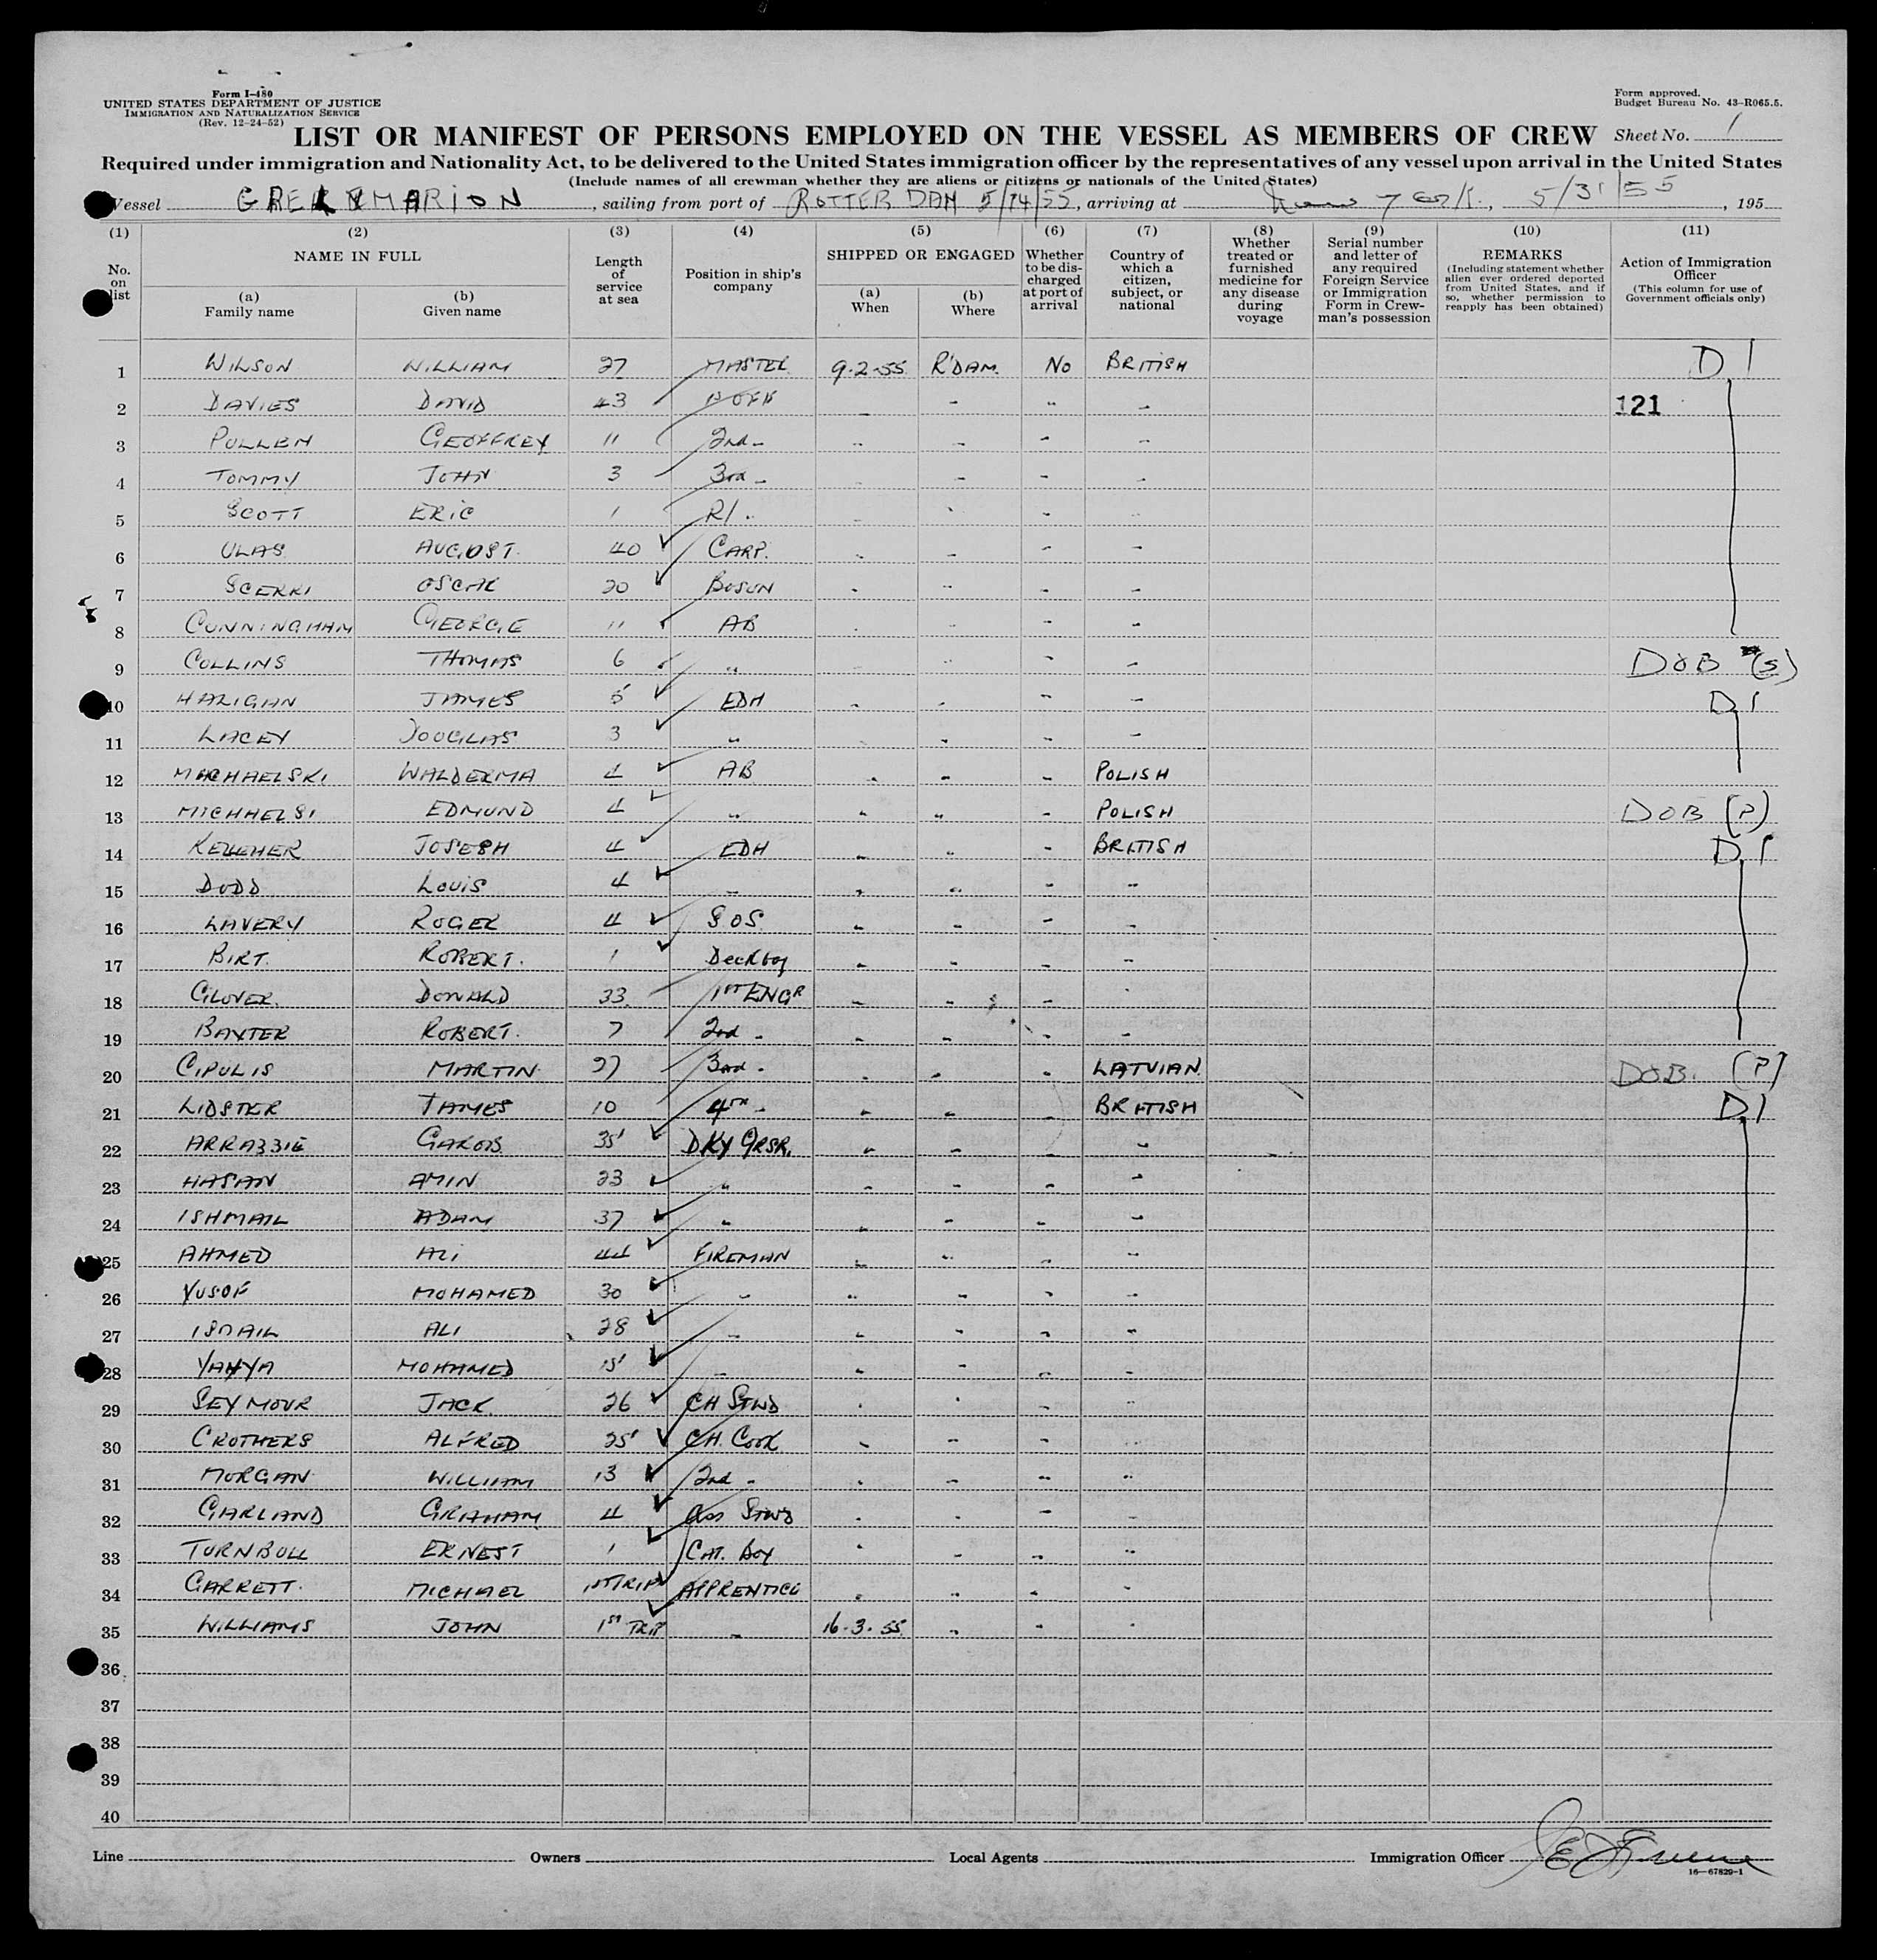 Form I-480
UNITED STATES DEPARTMENT OF JUSTICE
IMMIGRATION AND NATURALIZATION SERVICE
(Rev. 12-24-52)
Form approved.
Budget Bureau No. 43-R065.5.
LIST OR MANIFEST OF PERSONS EMPLOYED ON THE VESSEL AS MEMBERS OF CREW Sheet No. 1
Required under immigration and Nationality Act, to be delivered to the United States immigration officer by the representatives of any vessel upon arrival in the United States
(Include names of all crewman whether they are aliens or citizens or nationals of the United States)
Vessel MARION, sailing from port of ROTTERDAM 5/14/55, arriving at New York, 5/31/55, 195
(1) No. on list
(2) NAME IN FULL
(a) Family name
(b) Given name
(3) Length of service at sea
(4) Position in ship's company
(5) SHIPPED OR ENGAGED
(a) When
(b) Where
(6) Whether to be discharged at port of arrival
(7) Country of which a citizen, subject, or national
(8) Whether treated or furnished medicine for any disease during voyage
(9) Serial number and letter of any required Foreign Service or Immigration Form in Crewman's possession
(10) REMARKS
(Including statement whether alien ever ordered deported from United States, and if so, whether permission to reapply has been obtained)
(11) Action of Immigration Officer
(This column for use of Government officials only)
1 WILSON WILLIAM 27 MASTER 9-2-55 R'DAM. NO BRITISH D 1
2 DAVIES DAVID 43 1st OFF - - - - 121
3 PULLEN GEOFFREY 11 2nd - - - - -
4 TOMMY JOHN 3 3rd - - - - -
5 SCOTT ERIC 1 R/. - - - -
6 ULAS AUGUST. 40 CARP. - - - -
7 SCERRI OSCAR 20 BOSUN - - - -
8 CUNNINGHAM GEORGE 11 AB - - - -
9 COLLINS THOMAS 6 " - - - - DOB (S)
10 HALIGAN JAMES 5 EDH - - - - D 1
11 LACEY DOUGLAS 3 " - - - -
12 MACHAELSKI WALDERMA 4 AB - - - POLISH
13 MICHAELSI EDMUND 4 " - - - POLISH DOB (P)
14 KELLEHER JOSEPH 4 EDH - - - BRITISH D 1
15 DODD LOUIS 4 - - - - -
16 LAVERY ROGER 4 SOS. - - - -
17 BIRT. ROBERT. 1 Deck boy - - - -
18 GLOVER. DONALD 33 1ST ENGR - - - -
19 BAXTER ROBERT. 7 2nd - - - - -
20 CIPULIS MARTIN 27 3rd - - - - LATVIAN DOB. (P)
21 LIDSTER JAMES 10 4TH - - - - BRITISH D 1
22 ARRAZZIE 35 DKY GRSR. - - -
23 HASAN AMIN 23 " - - - -
24 ISHMAIL ADAM 37 " - - - -
25 AHMED ALI 44 FIREMAN - - - -
26 YUSOF MOHAMED 30 - - - - -
27 ISMAIL ALI 28 - - - - -
28 YAHYA MOHAMED 15 - - - - -
29 SEYMOUR JACK. 26 CH STWD - - - -
30 CROTHERS ALFRED 25 CH. COOK - - - -
31 MORGAN WILLIAM 13 2nd - - - - -
32 GARLAND GRAHAM 4 Ass STWD - - - -
33 TURNBULL ERNEST 1 CAT. BOY - - - -
34 GARRETT. MICHAEL 1ST TRIP APPRENTICE - - - -
35 WILLIAMS JOHN 1ST TRIP - 16-3-55 - - -
36
37
38
39
40
Line Owners Local Agents Immigration Officer
16-67829-1